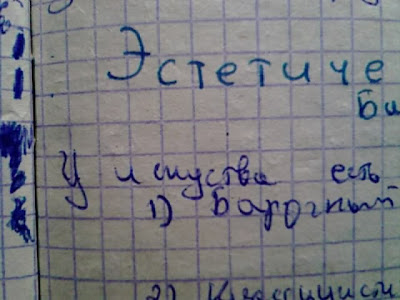 Эстетиче
У искуства есть
1) Барочный
2) Классицист